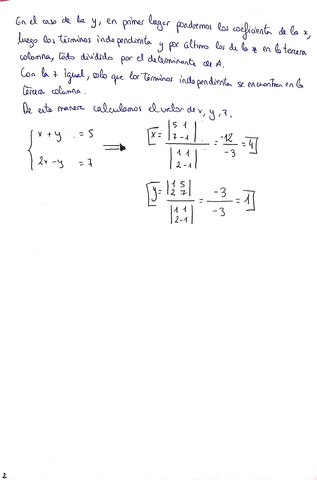 En el caso de la y, en primer lugar pondremos los coeficientes de la x,
luego los términos independientes y por último los de la z en la tercera
columna, todo dividido por el determinante de A.
Con la z igual, solo que los términos independientes se encuentran en la
tercera columna.
De esta manera calculamos el valor de x, y, z.
{ x + y = 5
2x - y = 7
⟹
[x = |5 1; 7 -1| / |1 1; 2 -1| = -12 / -3 = 4]
[y = |1 5; 2 7| / |1 1; 2 -1| = -3 / -3 = 1]
2